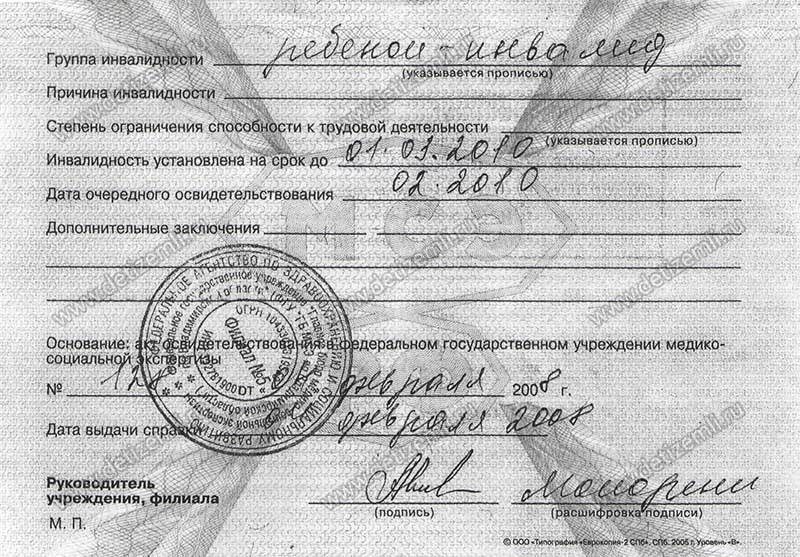 Группа инвалидности ребенок - инвалид
(указывается прописью)
Причина инвалидности
Степень ограничения способности к трудовой деятельности
(указывается прописью)
Инвалидность установлена на срок до 01.03.2010
Дата очередного освидетельствования 02.2010
Дополнительные заключения
Основание: акт освидетельствования в федеральном государственном учреждении медико-
социальной экспертизы
№ 128 февраля 2008 г.
Дата выдачи справки февраля 2008
Руководитель
учреждения, филиала
(подпись) (расшифровка подписи)
М. П.
© ООО «Типография «Еврокопия-2 СПб». СПб. 2005 г. Уровень «В».
ФЕДЕРАЛЬНОЕ АГЕНТСТВО ПО ЗДРАВООХРАНЕНИЮ И СОЦИАЛЬНОМУ РАЗВИТИЮ
Филиал №5
МСЭ
www.detizemli.ru